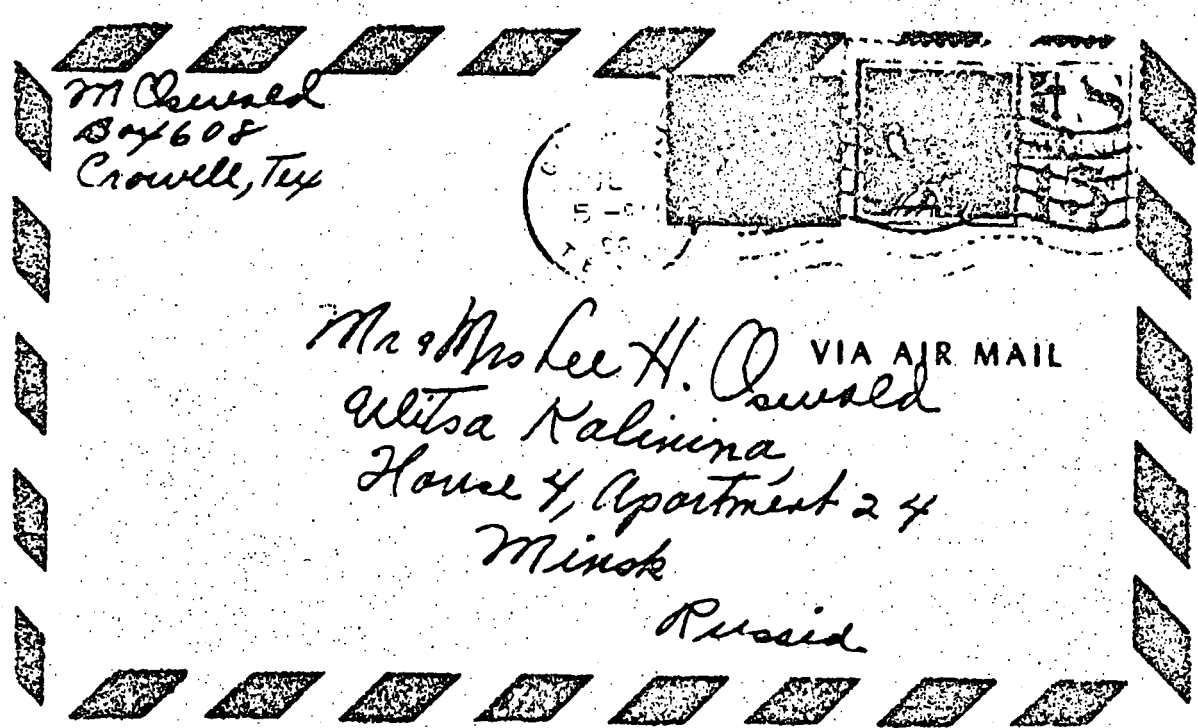 M Oswald
Box 608
Crowell, Tex
5 -PM
TE
Mr & Mrs Lee H. Oswald
VIA AIR MAIL
Ulitsa Kalinina,
House 4, Apartment 24
Minsk
Russia